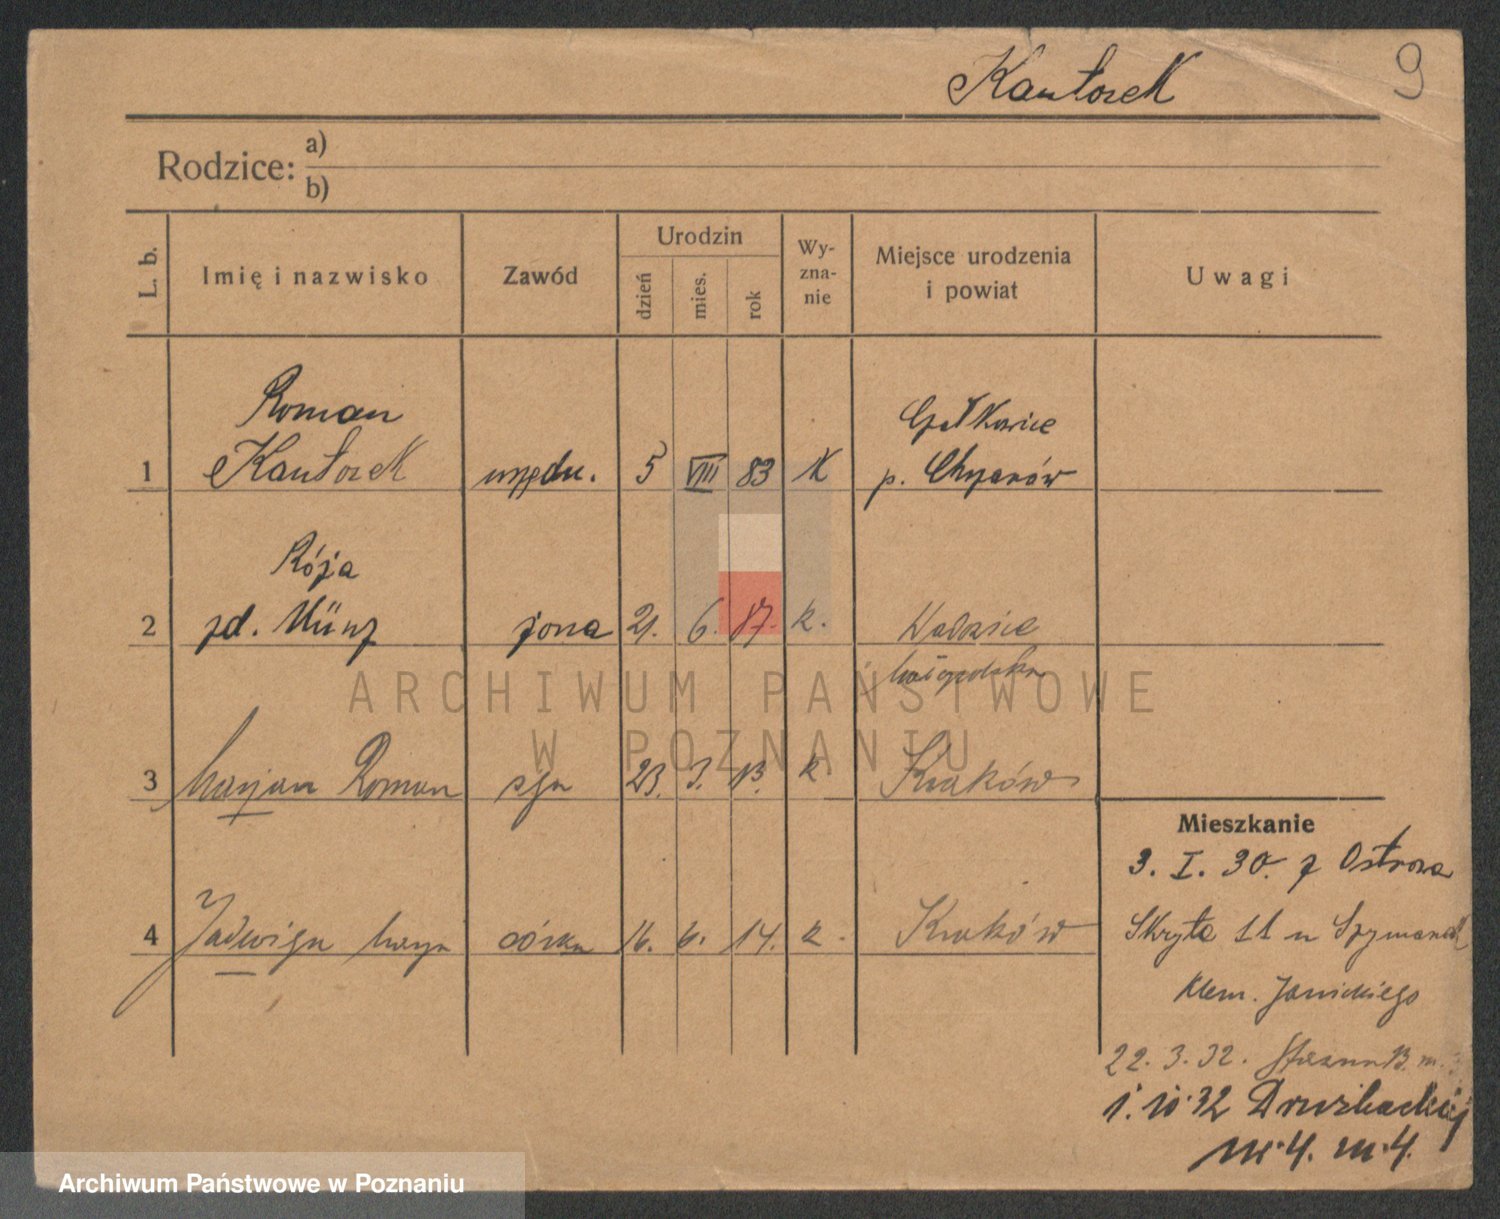 Kantorek
9
Rodzice: a)
b)
L. b.
Imię i nazwisko
Zawód
Urodzin
dzień
mies.
rok
Wy-
zna-
nie
Miejsce urodzenia
i powiat
Uwagi
Roman
1 Kantorek urzędn. 5 VIII 83 K
p. Chrzanów
Róża
2 zd. Münz żona 21. 6. 87. k.
3 Marjan Roman syn 23. 3. 13. k. Kraków
4 Jadwiga Marja córka 16. 6. 14. k. Kraków
Mieszkanie
3. I. 30. z Ostrowa
Skryta 11 u Szymanek
Klem. Janickiego
22. 3. 32.
1. 10 32 Drużbackiej
nr. 4. m. 4.
ARCHIWUM PAŃSTWOWE
W POZNANIU
Archiwum Państwowe w Poznaniu